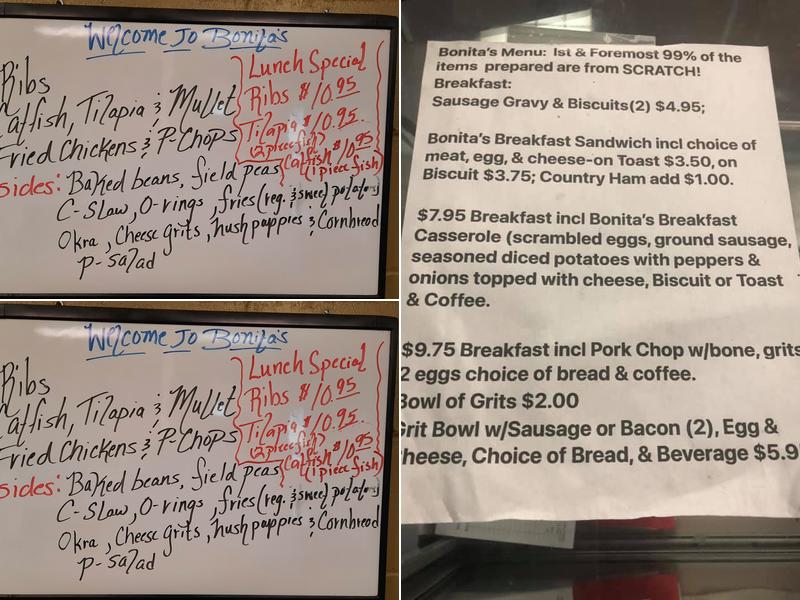 Welcome To Bonita's
Ribs
Catfish, Tilapia & Mullet
Fried Chickens & P-Chops
sides: Baked beans, field peas
C-Slaw, O-rings, fries (reg. & sweet) potato
Okra, Cheese grits, hush puppies & Cornbread
P-Salad
Lunch Special
Ribs $10.95
Tilapia $10.95
(2 piece fish)
Catfish $10.95
(1 piece fish)
Welcome To Bonita's
Ribs
Catfish, Tilapia & Mullet
Fried Chickens & P-Chops
sides: Baked beans, field peas
C-Slaw, O-rings, fries (reg. & sweet) potato
Okra, Cheese grits, hush puppies & Cornbread
P-Salad
Lunch Special
Ribs $10.95
Tilapia $10.95
(2 piece fish)
Catfish $10.95
(1 piece fish)
Bonita's Menu: Ist & Foremost 99% of the
items prepared are from SCRATCH!
Breakfast:
Sausage Gravy & Biscuits(2) $4.95;
Bonita's Breakfast Sandwich incl choice of
meat, egg, & cheese-on Toast $3.50, on
Biscuit $3.75; Country Ham add $1.00.
$7.95 Breakfast incl Bonita's Breakfast
Casserole (scrambled eggs, ground sausage,
seasoned diced potatoes with peppers &
onions topped with cheese, Biscuit or Toast
& Coffee.
$9.75 Breakfast incl Pork Chop w/bone, grits
2 eggs choice of bread & coffee.
Bowl of Grits $2.00
Grit Bowl w/Sausage or Bacon (2), Egg &
heese, Choice of Bread, & Beverage $5.9